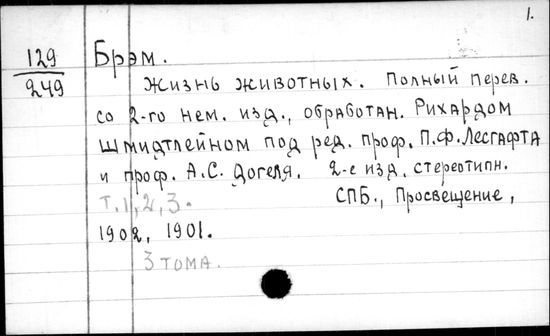 1.
129
249
Брэм.
Жизнь животных. Полный перев.
со 2-го нем. изд., обработан. Рихардом
Шмидтлейном под ред. проф. П.Ф.Лесгафта
и проф. А.С. Догеля. 2-е изд. стереотипн.
Т.1,2,3. СПБ., Просвещение,
1902, 1901.
3 тома.